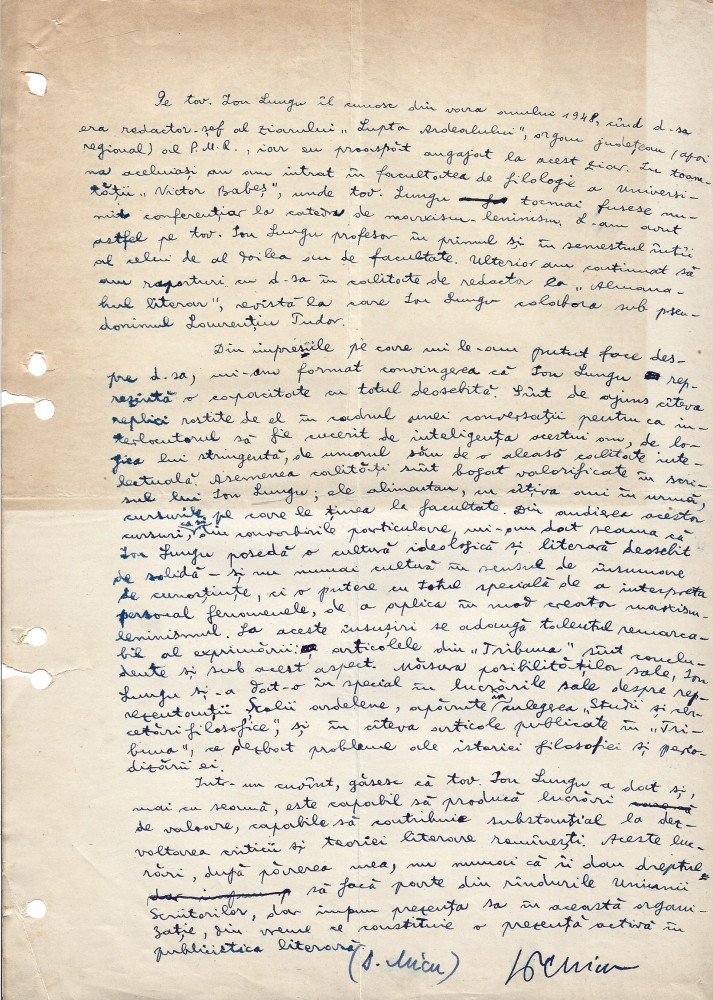 Pe tov. Ion Lungu îl cunosc din vara anului 1948, cînd d-sa
era redactor-șef al ziarului „Lupta Ardealului", organ județean (apoi
regional) al P.M.R., iar eu proaspăt angajat la acest ziar. În toam-
na aceluiași an am intrat în facultatea de filologie a Universi-
tății „Victor Babeș", unde tov. Lungu tocmai fusese nu-
mit conferențiar la catedra de marxism-leninism. L-am avut
astfel pe tov. Ion Lungu profesor în primul și în semestrul întîi
al celui de al doilea an de facultate. Ulterior am continuat să
am raporturi cu d-sa în calitate de redactor la „Almana-
hul literar", revistă la care Ion Lungu colabora sub pseu-
donimul Laurențiu Tudor.
Din impresiile pe care mi le-am putut face des-
pre d-sa, mi-am format convingerea că Ion Lungu rep-
rezintă o capacitate cu totul deosebită. Sînt de ajuns cîteva
replici rostite de el în cadrul unei conversații pentru ca in-
terlocutorul să fie cucerit de inteligența acestui om, de lo-
gica lui stringentă, de umorul său de o aleasă calitate inte-
lectuală. Asemenea calități sînt bogat valorificate în scri-
sul lui Ion Lungu; ele alimentau, cu cîțiva ani în urmă,
cursurile pe care le ținea la facultate. Din audierea acestor
cursuri, ca și din convorbirile particulare, mi-am dat seama că
Ion Lungu posedă o cultură ideologică și literară deosebit
de solidă – și nu numai cultură în sensul de însumare
de cunoștințe, ci o putere cu totul specială de a interpreta
personal fenomenele, de a aplica în mod creator marxism-
leninismul. La aceste însușiri se adaugă talentul remarca-
bil al exprimării: articolele din „Tribuna" sînt conclu-
dente și sub acest aspect. Măsura posibilităților sale, Ion
Lungu și-a dat-o în special în lucrările sale despre rep-
rezentanții Școlii ardelene, apărute în culegerea „Studii și cer-
cetări filosofice", și în cîteva articole publicate în „Tri-
buna", ce dezbat probleme ale istoriei filosofiei și perio-
dizării ei.
Într-un cuvînt, găsesc că tov. Ion Lungu a dat și,
mai cu seamă, este capabil să producă lucrări
de valoare, capabile să contribuie substanțial la dez-
voltarea criticii și teoriei literare romînești. Aceste luc-
rări, după părerea mea, nu numai că îi dau dreptul
să facă parte din rîndurile Uniunii
Scriitorilor, dar impun prezența sa în această organi-
zație, din vreme ce constituie o prezență activă în
publicistica literară.
(D. Micu) DMicu